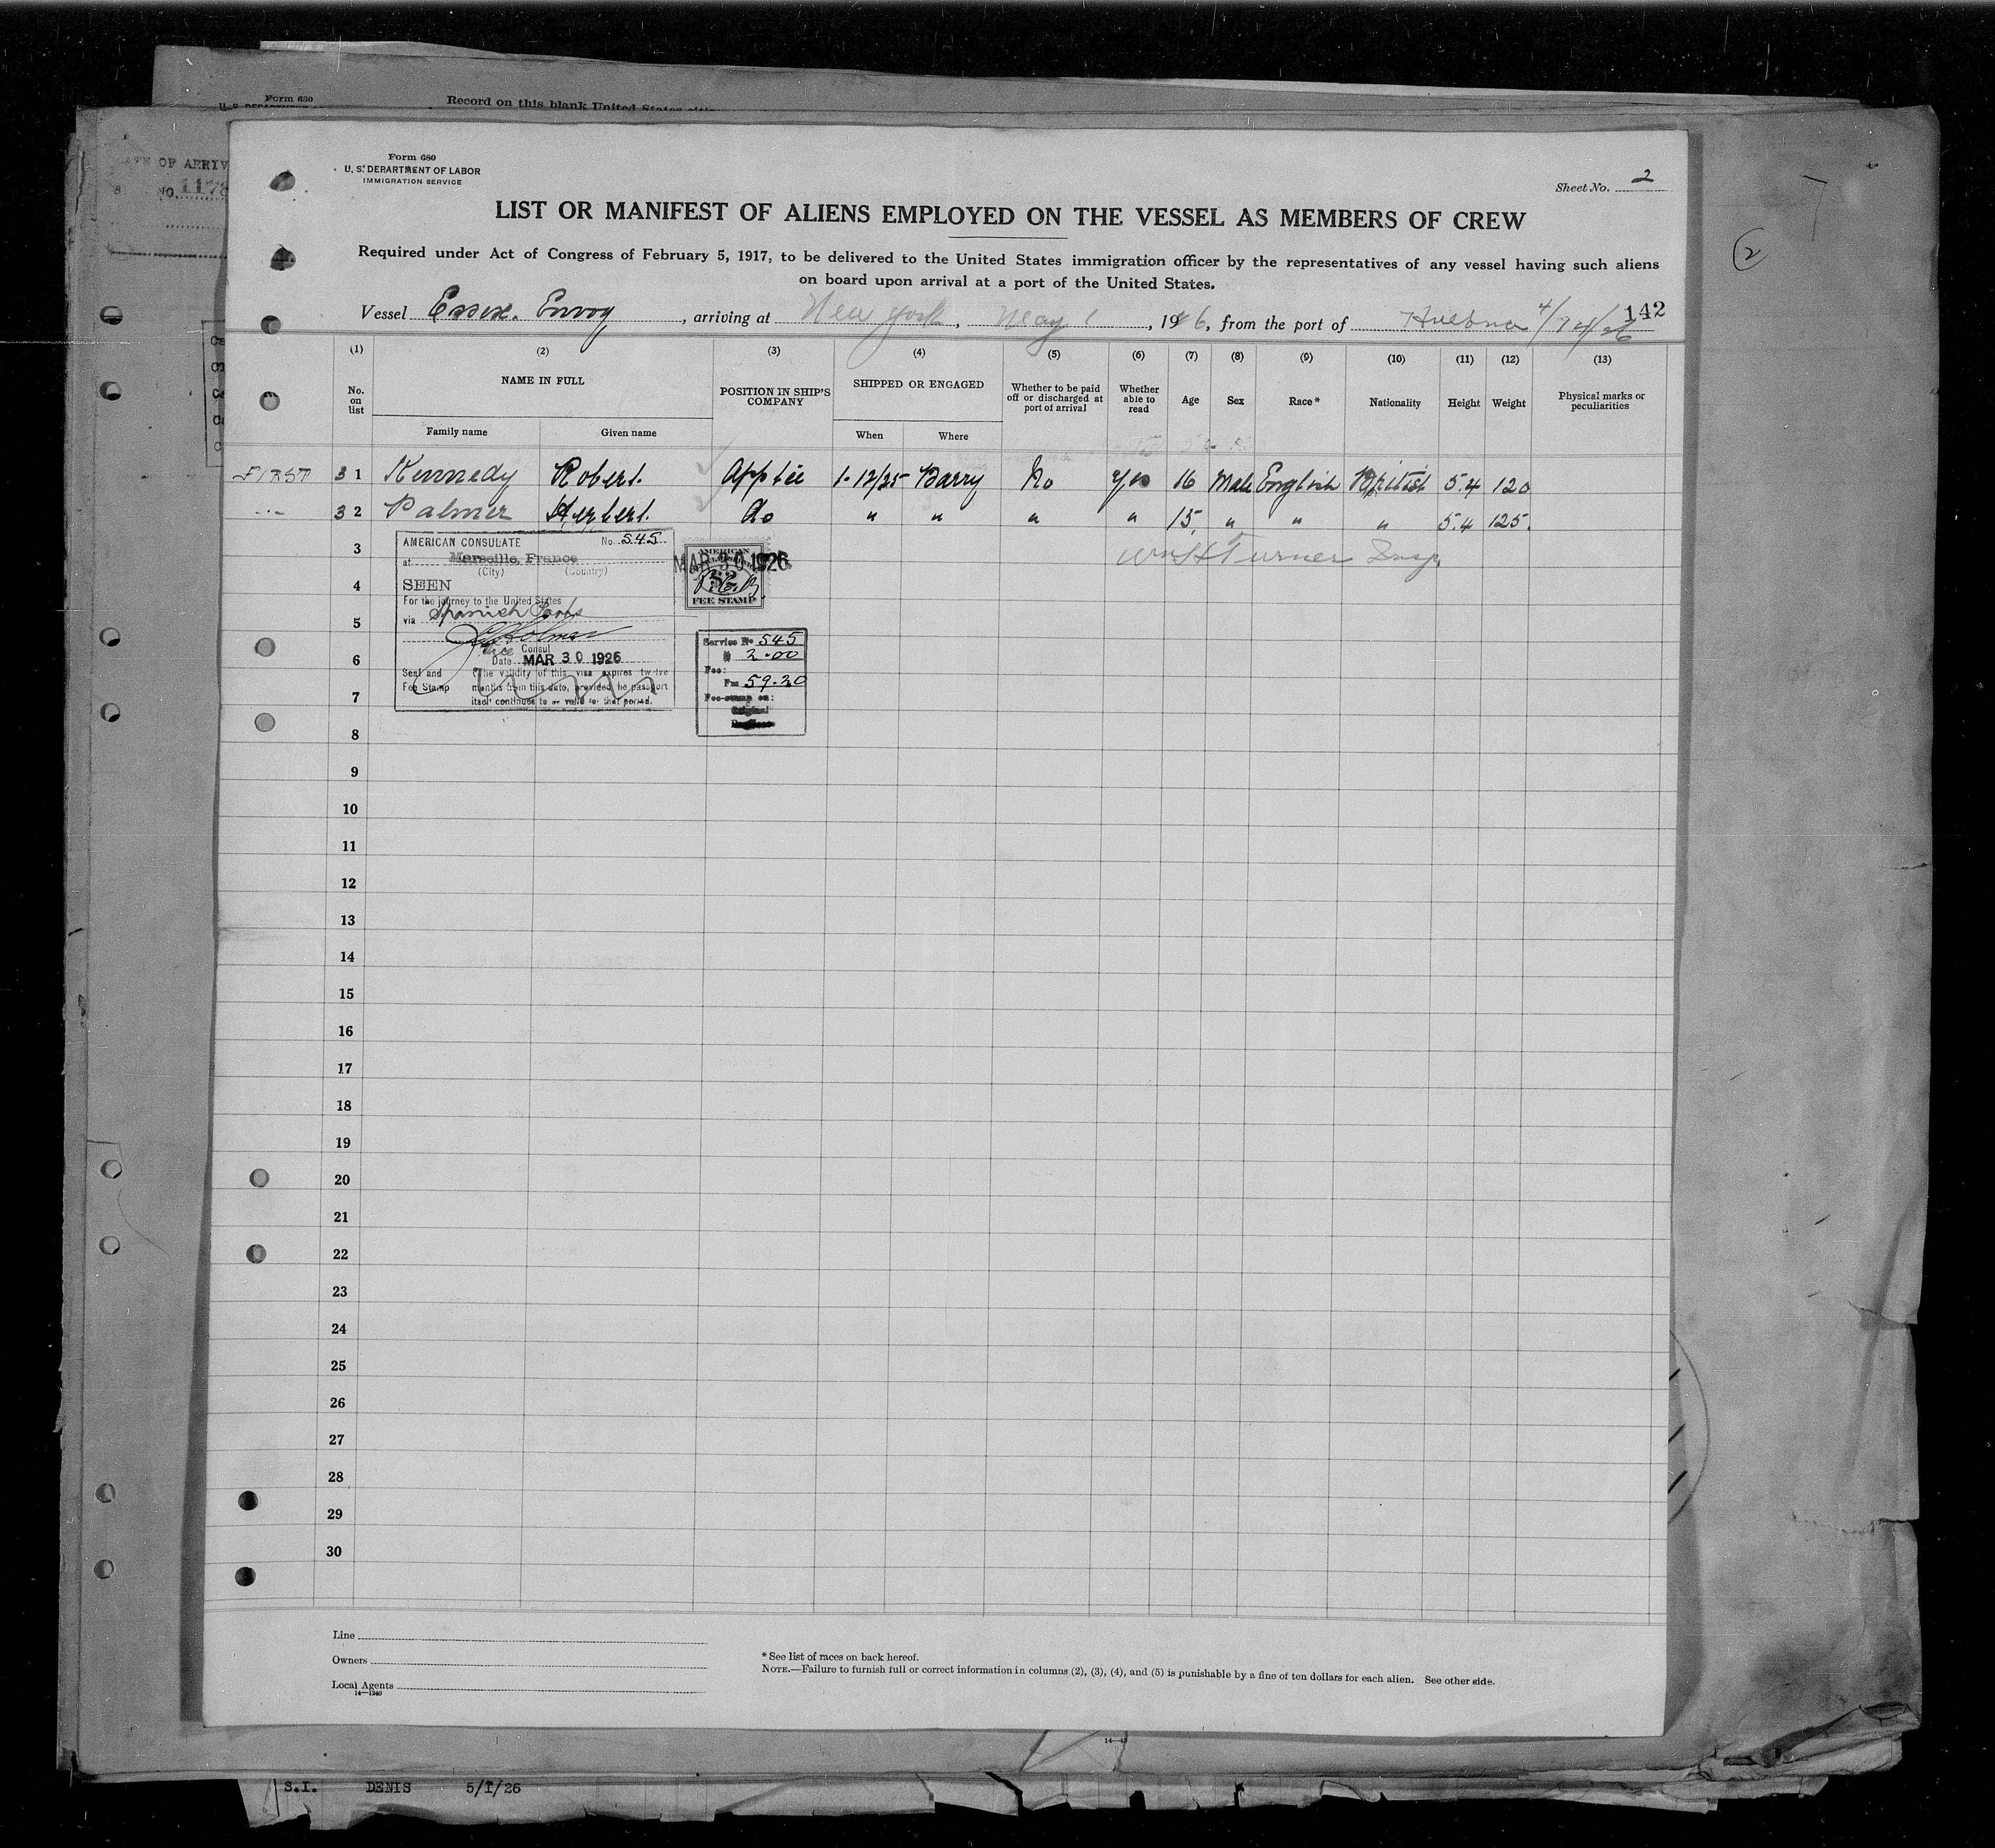 Form 630
Record on this blank United States
NO. 1178
Form 680
U. S. DEPARTMENT OF LABOR
IMMIGRATION SERVICE
Sheet No. 2
LIST OR MANIFEST OF ALIENS EMPLOYED ON THE VESSEL AS MEMBERS OF CREW
Required under Act of Congress of February 5, 1917, to be delivered to the United States immigration officer by the representatives of any vessel having such aliens
on board upon arrival at a port of the United States.
2
142
Vessel Essex. Envoy, arriving at New York, May 1, 1926, from the port of 4/24/26
(1) (2) (3) (4) (5) (6) (7) (8) (9) (10) (11) (12) (13)
No. on list NAME IN FULL POSITION IN SHIP'S COMPANY SHIPPED OR ENGAGED Whether to be paid off or discharged at port of arrival Whether able to read Age Sex Race* Nationality Height Weight Physical marks or peculiarities
Family name Given name When Where
FIRST 3 1 Kennedy Robert. Apptie 1-12/25 Barry No Yes 16 Male English British 5.4 120
3 2 Palmer Herbert. do " " " " 15 " " " 5.4 125.
3 Wm H Turner Insp.
AMERICAN CONSULATE No. 545
at Marseille, France
(City) (Country)
SEEN
For the journey to the United States
via Spanish Ports
Vice Consul
Date MAR 30 1926
Seal and Fee Stamp
(The validity of this visa expires twelve
months from this date, provided the passport
itself continues to be valid for that period.
AMERICAN
MAR 30 1926
FEE STAMP
Service No 545
$ 2.00
Fee:
Frs 59.20
Fee stamp on:
Original
4
5
6
7
8
9
10
11
12
13
14
15
16
17
18
19
20
21
22
23
24
25
26
27
28
29
30
Line
Owners
Local Agents
14—1240
* See list of races on back hereof.
NOTE.—Failure to furnish full or correct information in columns (2), (3), (4), and (5) is punishable by a fine of ten dollars for each alien. See other side.
S.I. DENIS 5/1/26